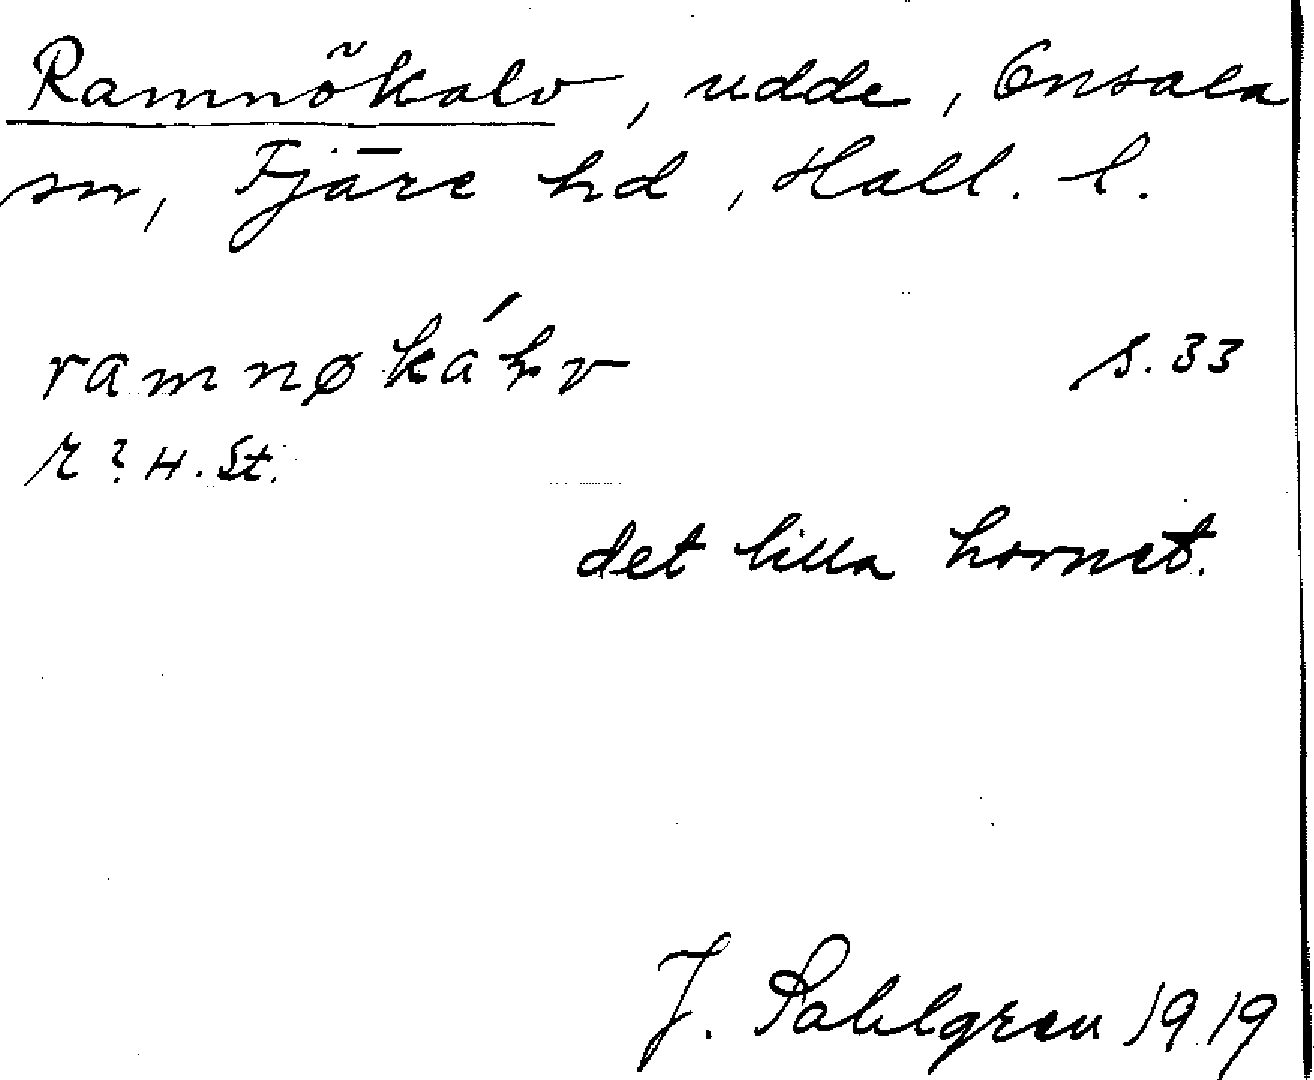 Ramnökalv, udde, Onsala
sn, Fjäre hd, Hall. l.
ramnøká s. 33
? H. St.
det lilla hornet.
J. Sahlgren 1919